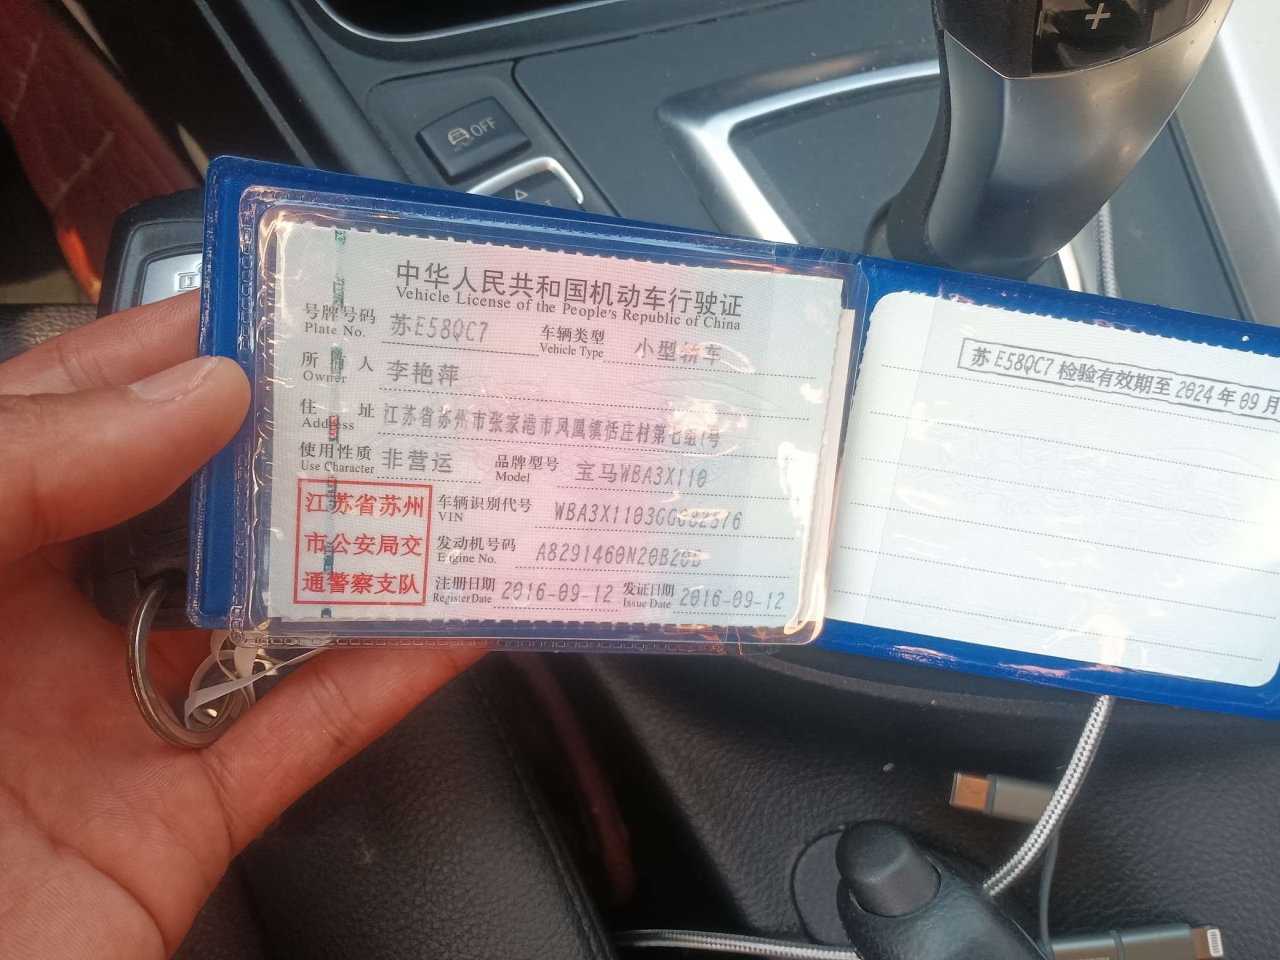 OFF
中华人民共和国机动车行驶证
Vehicle License of the People's Republic of China
号牌号码 苏E58QC7 车辆类型 小型轿车
Plate No. Vehicle Type
所 人 李艳萍
Owner
住 址 江苏省苏州市张家港市凤凰镇恬庄村第七组 号
Address
使用性质 非营运 品牌型号 宝马WBA3X110
Use Character Model
江苏省苏州
市公安局交
通警察支队
车辆识别代号
VIN
发动机号码 A8291460N20B20B
Engine No.
注册日期 2016-09-12 发证日期 2016-09-12
Register Date Issue Date
苏E58QC7 检验有效期至 2024 年 09 月